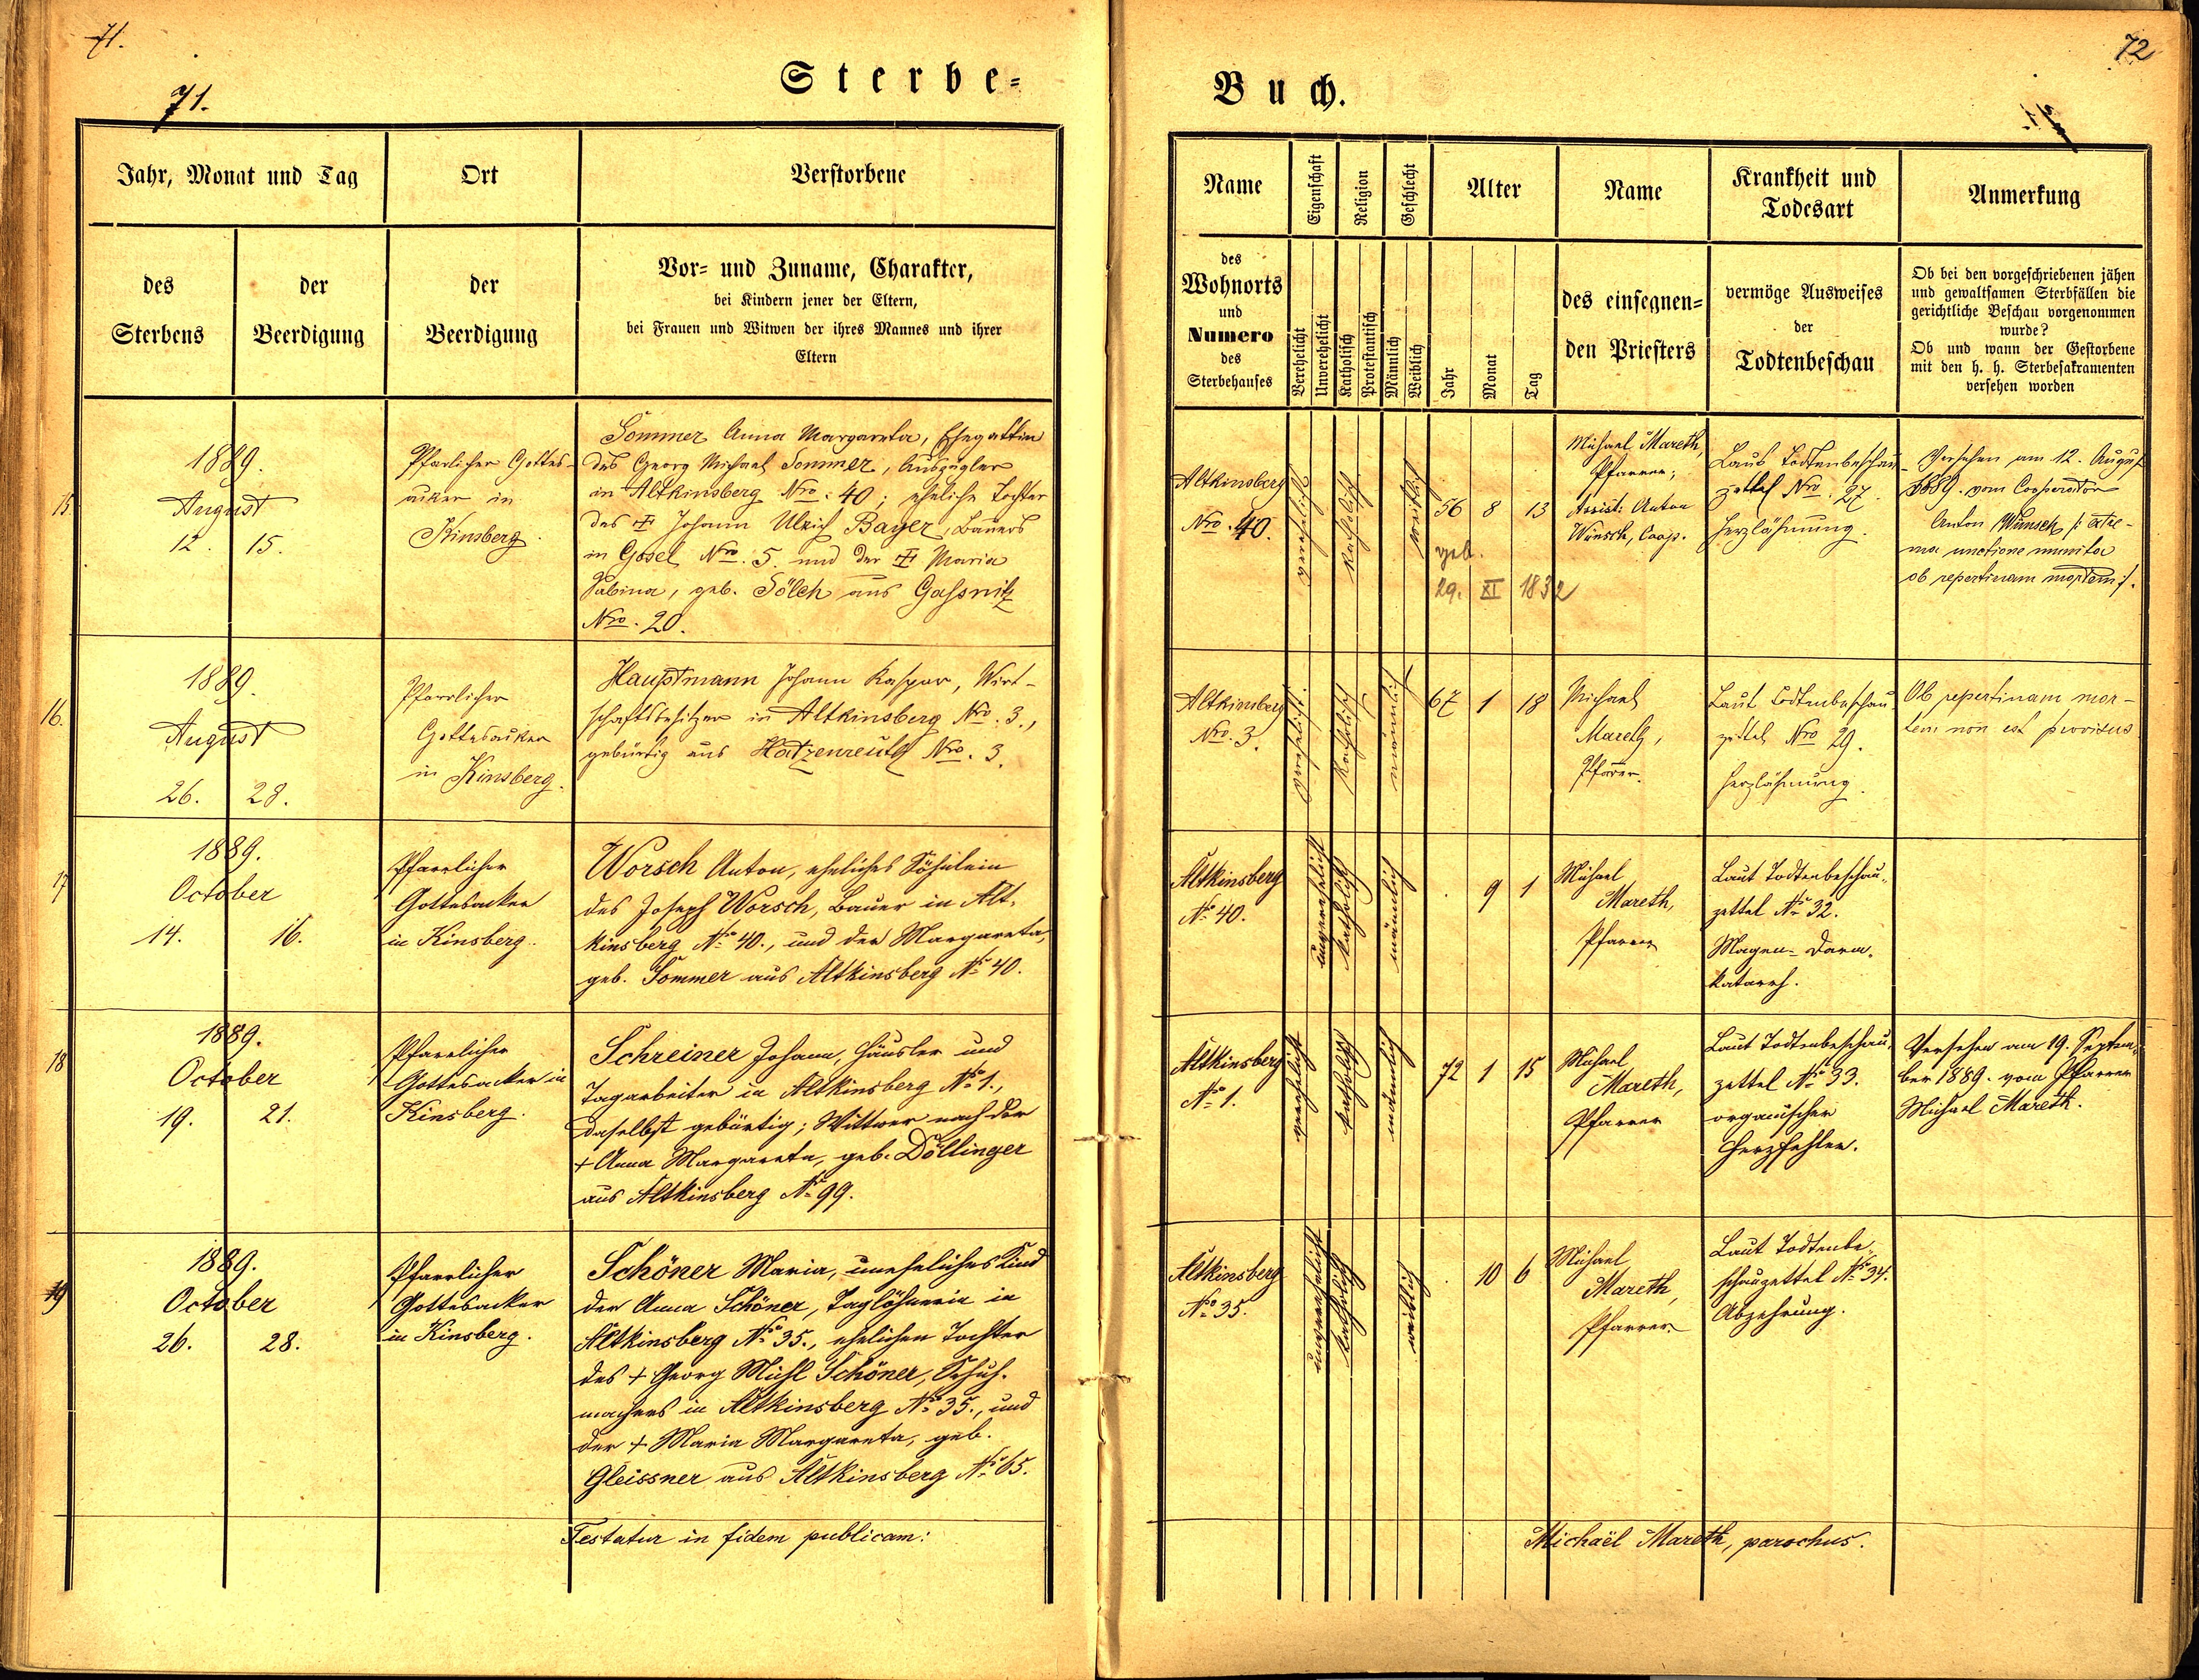 71.
71.
Sterbe=
Jahr, Monat und Tag
Ort
Verstorbene
des
Sterbens
der
Beerdigung
der
Beerdigung
Vor= und Zuname, Charakter,
bei Kindern jener der Eltern,
bei Frauen und Witwen der ihres Mannes und ihrer
Eltern
15
1889.
August
12. 15.
Pfarlicher Gottes-
acker in
Kinsberg.
Sommer Anna Margareta, Ehegattin
des Georg Michael Sommer, Auszügler
in Altkinsberg Nro. 40; eheliche Tochter
des † Johann Ulrich Bayer, Bauers
in Gosel Nro. 5. und der † Maria
Sabina, geb. Sölch aus Gassnitz
Nro. 20.
16.
1889.
August
26. 28.
Pfarrlicher
Gottesacker
in Kinsberg.
Hauptmann Johann Kaspar, Wirt-
schaftsbesitzer in Altkinsberg Nro. 3.,
gebürtig aus Hatzenreuth Nro. 3.
17
1889.
October
14. 16.
Pfarrlicher
Gottesacker
in Kinsberg.
Worsch Anton, eheliches Söhnlein
des Joseph Worsch, Bauer in Alt-
kinsberg No 40., und der Margareta,
geb. Sommer aus Altkinsberg No 40.
18
1889.
October
19. 21.
Pfarrlicher
Gottesacker in
Kinsberg.
Schreiner Johann, Häusler und
Tagarbeiter in Altkinsberg No 1.,
daselbst gebürtig; Wittwer nach der
+ Anna Margareta, geb. Döllinger
aus Altkinsberg No 99.
19
1889.
October
26. 28.
Pfarrlicher
Gottesacker
in Kinsberg.
Schöner Maria, uneheliches Kind
der Anna Schöner, Taglöhnerin in
Altkinsberg No 35., ehelichen Tochter
des + Georg Michl Schöner, Schuh-
machers in Altkinsberg No 35., und
der + Maria Margareta, geb.
Gleissner aus Altkinsberg No 65.
Testatur in fidem publicam:
72
Buch.
Name
Eigenschaft
Religion
Geschlecht
Alter
Name
Krankheit und
Todesart
Anmerkung
des
Wohnorts
und
Numero
des
Sterbehauses
Verehelicht
Unverehelicht
Katholisch
Protestantisch
Männlich
Weiblich
Jahr
Monat
Tag
des einsegnen=
den Priesters
vermöge Ausweises
der
Todtenbeschau
Ob bei den vorgeschriebenen jähen
und gewaltsamen Sterbfällen die
gerichtliche Beschau vorgenommen
wurde?
Ob und wann der Gestorbene
mit den h. h. Sterbesakramenten
versehen worden
Altkinsberg
Nro. 40.
verehelicht
katholisch
weiblich
56 8 13
geb.
29. XI 1832
Michael Mareth,
Pfarrer;
Assist: Anton
Wünsch, Coop.
Laut Todtenbeschau-
zettel Nro. 27.
Herzlähmung.
Versehen am 12. August
1889. vom Cooperator
Anton Wünsch /: extre-
ma unctione munita
ob repentinam mortem :/.
Altkinsberg
Nro. 3.
verehelicht.
katholisch
männlich
67 1 18
Michael
Mareth,
Pfarrer.
Laut Todtenbeschau-
zettel Nro 29.
Herzlähmung.
Ob repentinam mor-
tem non est provisus
Altkinsberg
No 40.
unverehelicht
katholisch
männlich
. 9 1
Michael
Mareth,
Pfarrer
Laut Todtenbeschau-
zettel No 32.
Magen- Darm-
katarrh.
Altkinsberg
No 1.
verehelicht
katholisch
männlich
72 1 15
Michael
Mareth,
Pfarrer
Laut Todtenbeschau-
zettel No 33.
organischer
Herzfehler.
Versehen am 19. Septem-
ber 1889. vom Pfarrer
Michael Mareth.
Altkinsberg
No 35.
unverehelicht
katholisch
weiblich
. 10 6
Michael
Mareth,
Pfarrer.
Laut Todtenbe-
schauzettel No 34.
Abzehrung.
Michaël Mareth, parochus.